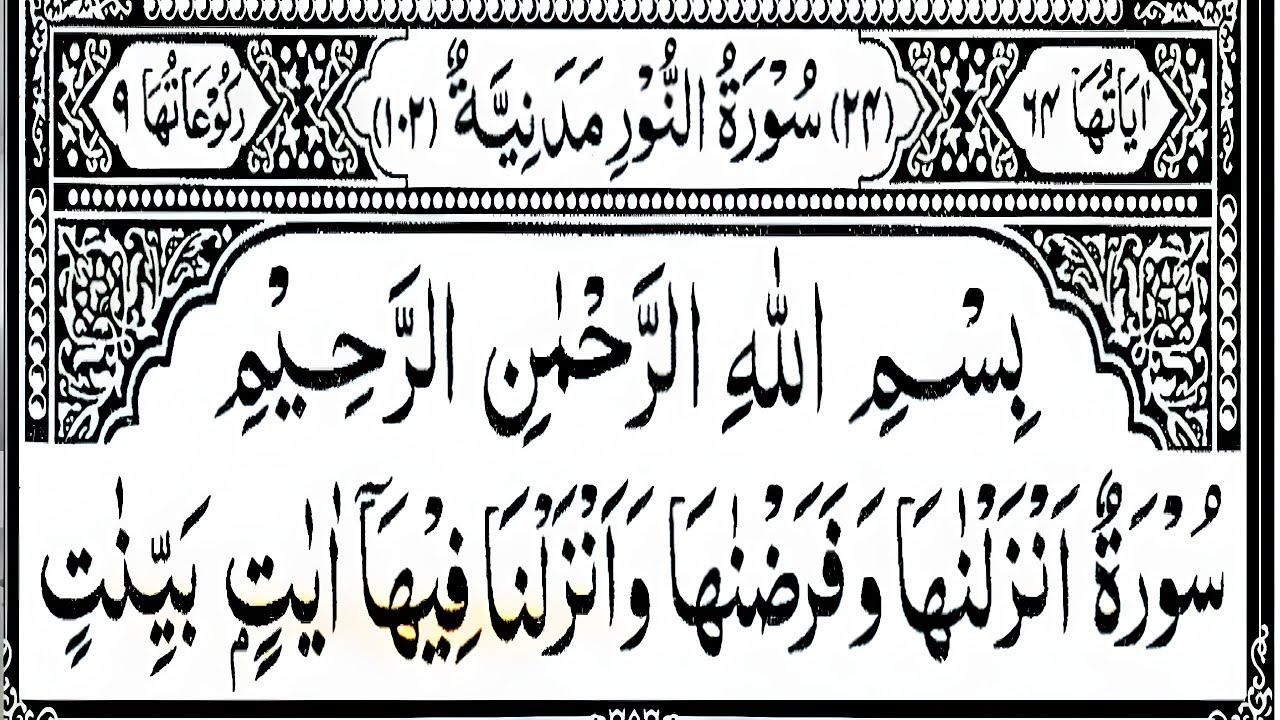 اٰيَاتُهَا ٦٤ (٢٤) سُوْرَةُ النُّوْرِ مَدَنِيَّةٌ (١٠٢) رُكُوْعَاتُهَا ٩
بِسْمِ اللّٰهِ الرَّحْمٰنِ الرَّحِيْمِ
سُوْرَةٌ اَنْزَلْنٰهَا وَفَرَضْنٰهَا وَاَنْزَلْنَا فِيْهَاۤ اٰيٰتٍۭ بَيِّنٰتٍ